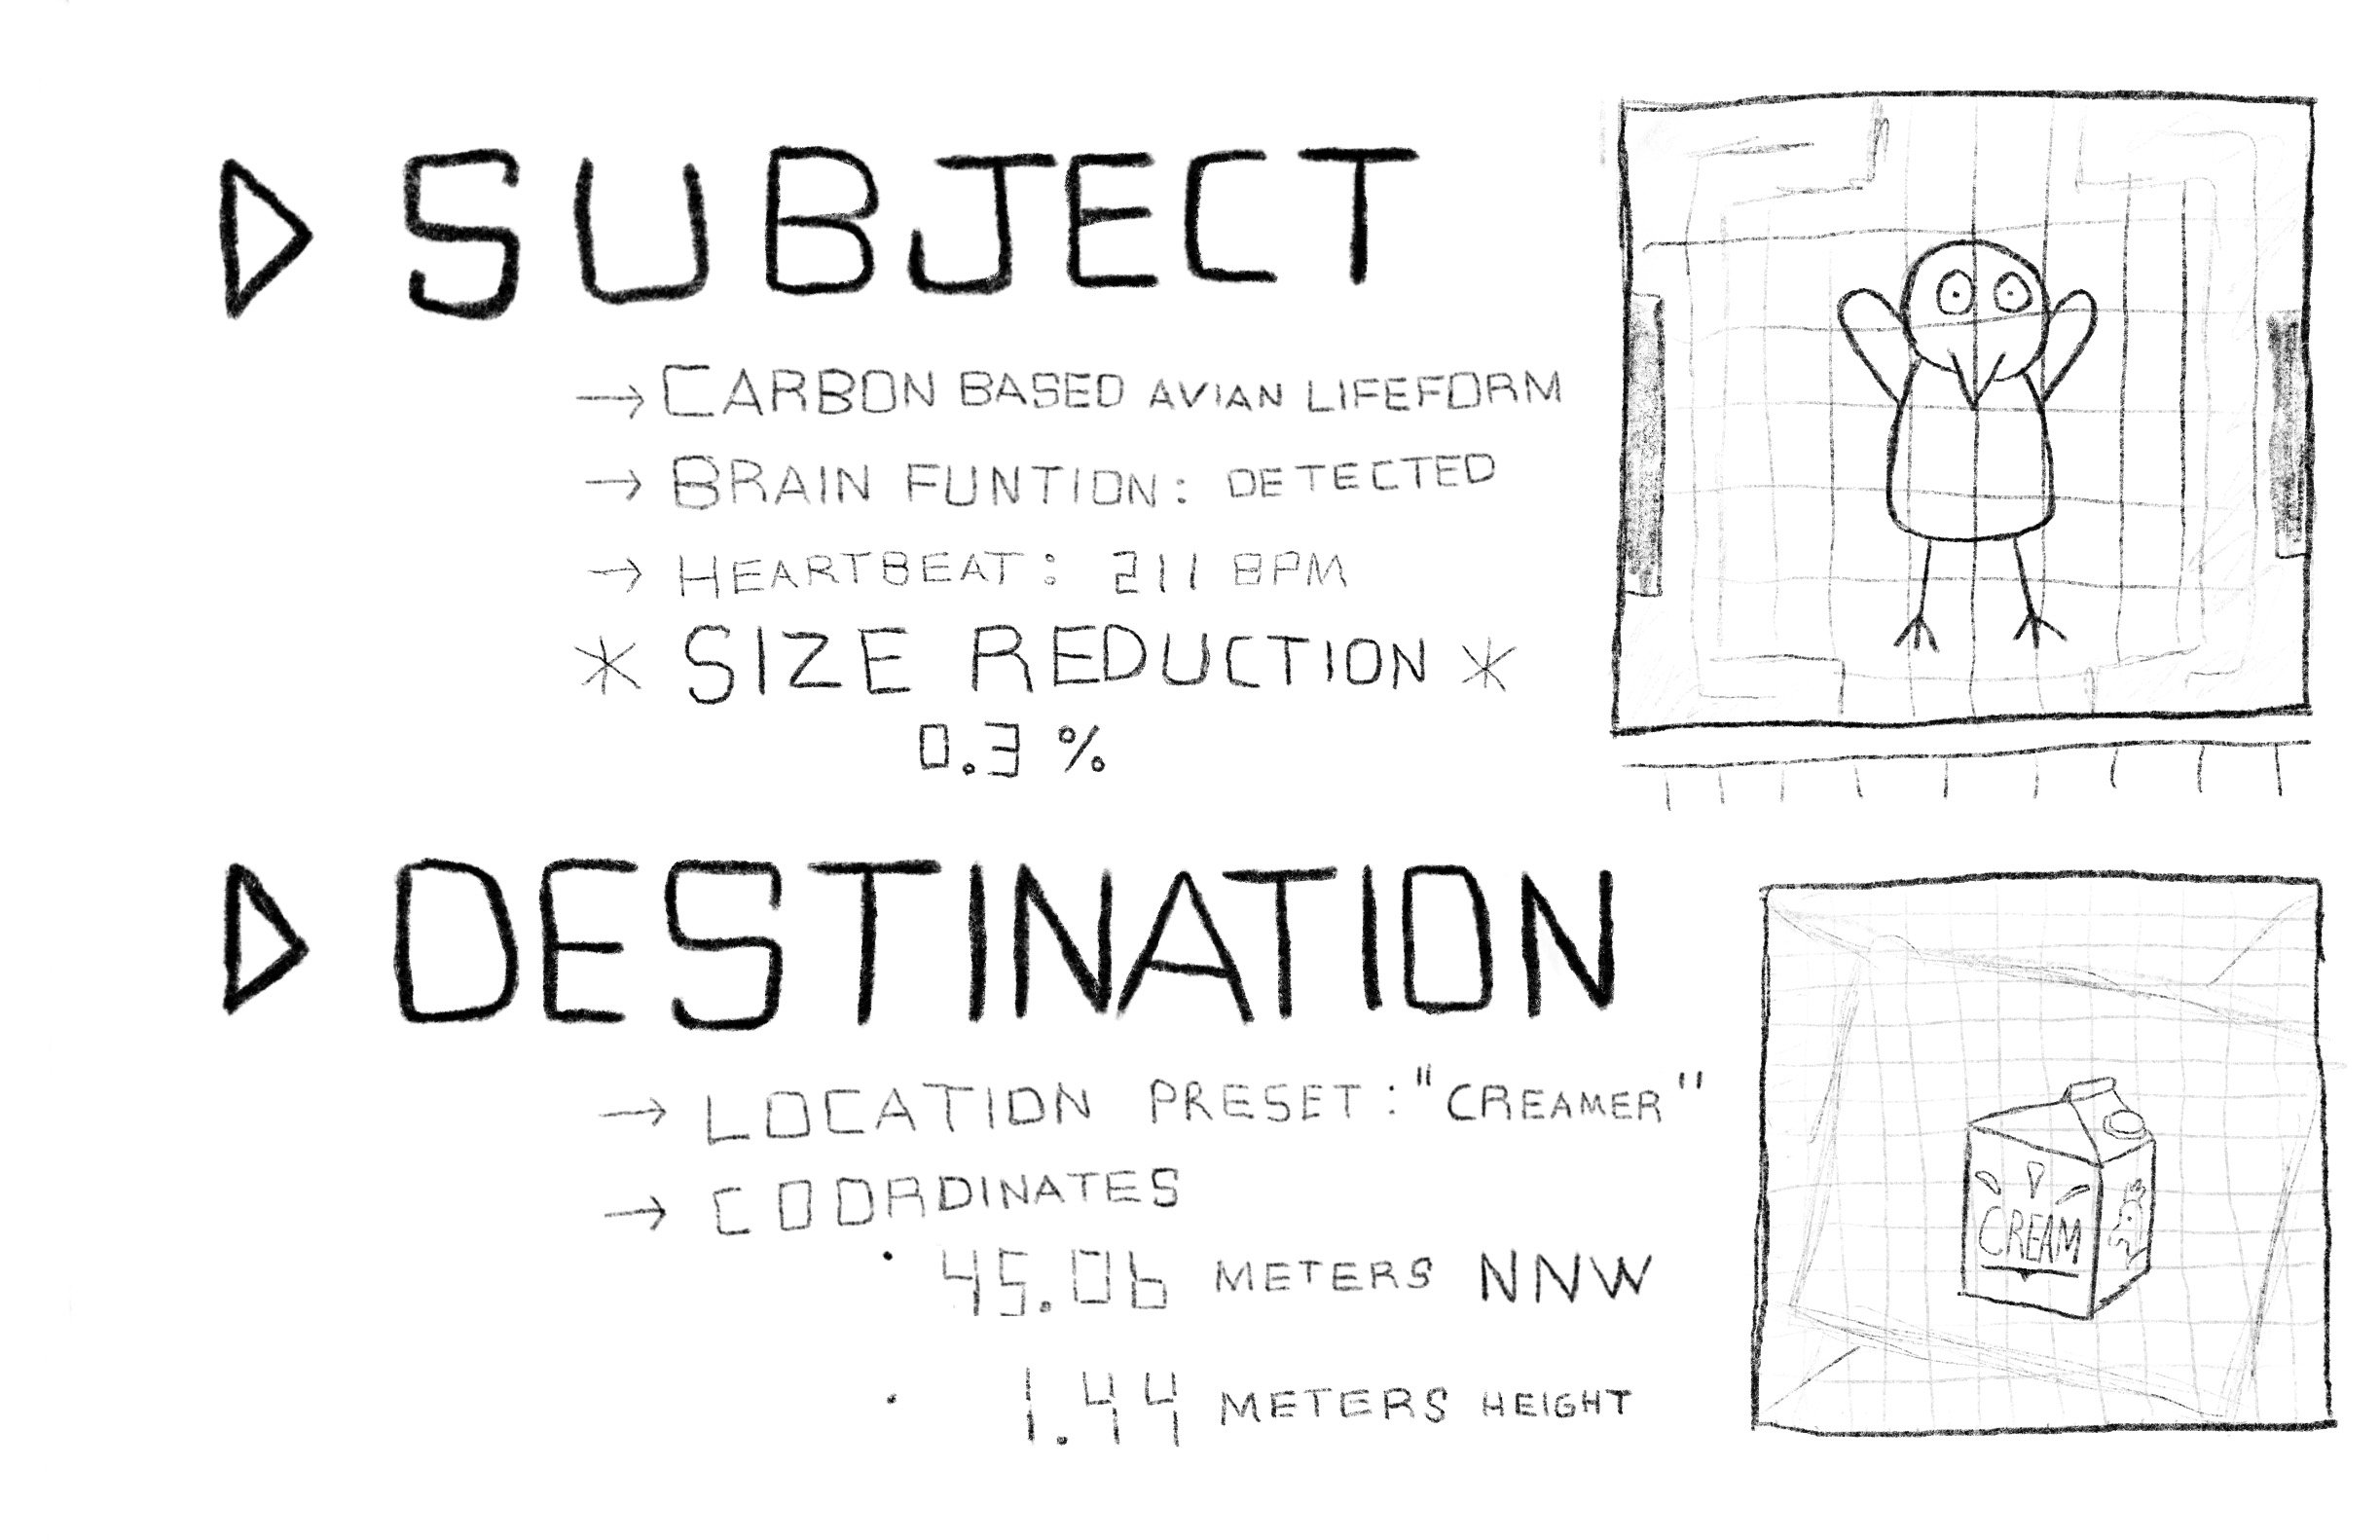 SUBJECT
→ CARBON BASED AVIAN LIFEFORM
→ BRAIN FUNTION: DETECTED
→ HEARTBEAT: 211 BPM
* SIZE REDUCTION *
0.3 %
DESTINATION
→ LOCATION PRESET: "CREAMER"
→ COORDINATES
• 45.06 METERS NNW
• 1.44 METERS HEIGHT
CREAM